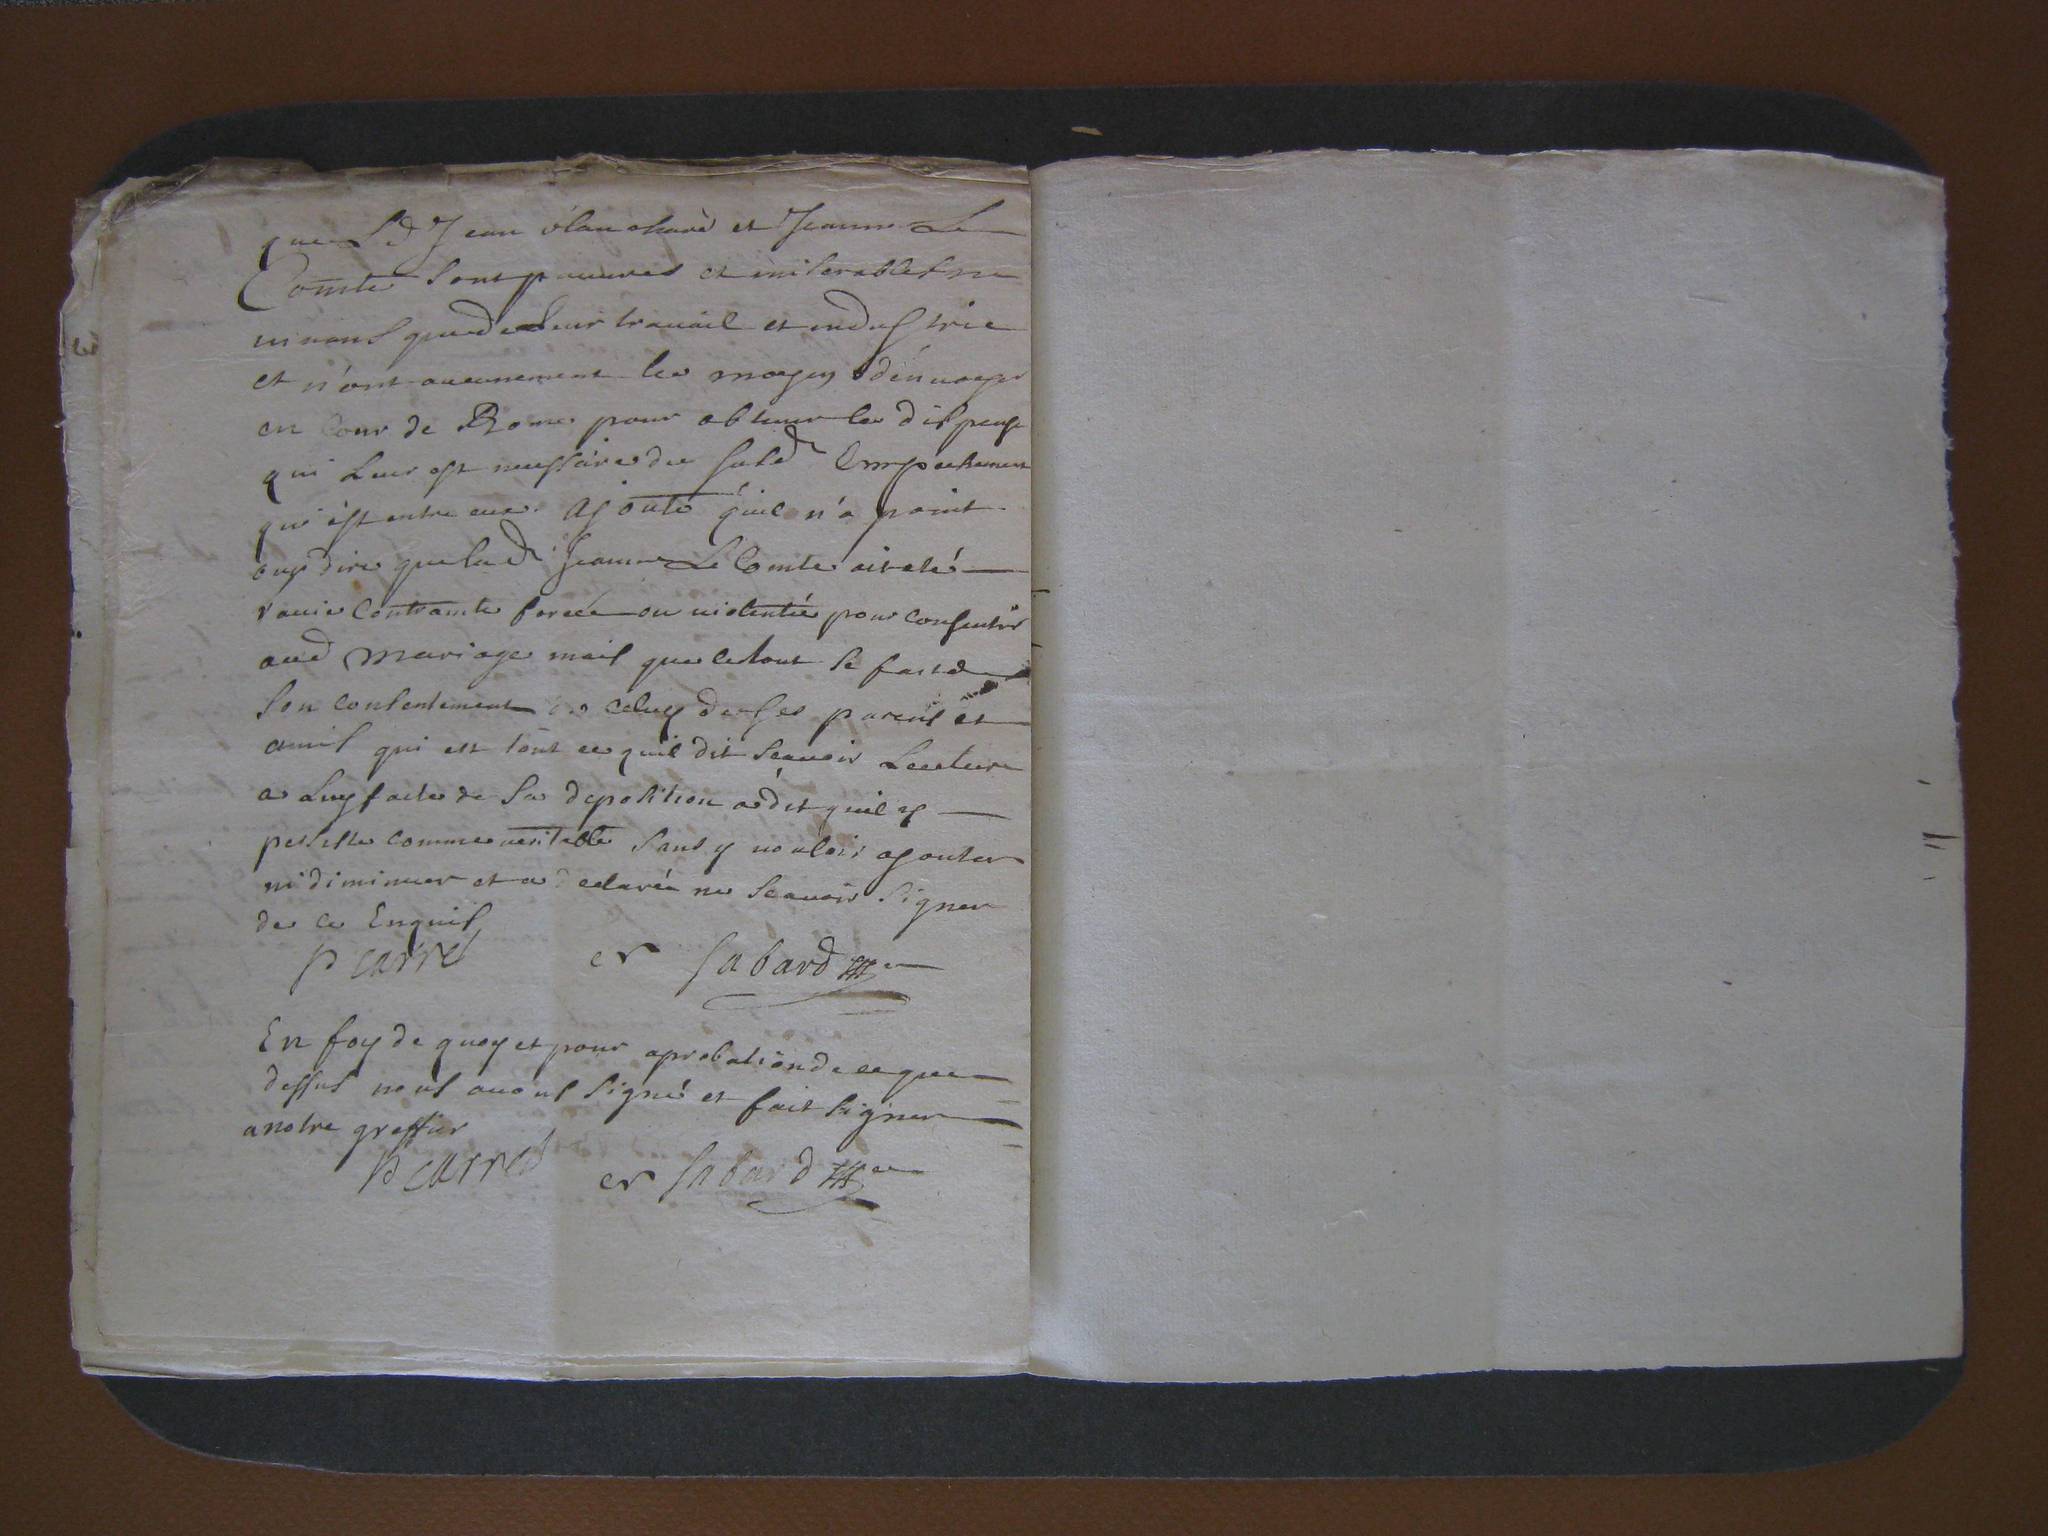 que Ld Jean blanchare et Jeanne Le
Comte sont pauures et miserables ne
uiuans que de Leur trauail et industrie
et n'ont aucunement les moyens d'énuoyer
en Cour de Rome pour obtenir la dispense
qui Leur est nessaire du susd Empechement
qui est entre eux. ajouté quil n'a point
ouy dire que lad Jeanne Le Comte ait eté
rauie Contrainte forcée ou uiolentée pour consentir
aud mariage mais que le tout se fait de
son consentement et celuy de ses parens et
amis qui est tout ce quil dit scauoir Lecture
a Luy faite de sa deposition a dit quil y
persiste comme ueritable sans y uouloir ajouter
ni diminuer et a declarée ne scauoir signer
de ce Enquis
p carré er Sabard
En foy de quoy et pour aprobation de ce que
dessus nous auons signé et fait signer
a notre greffier
p carré er Sabard
3